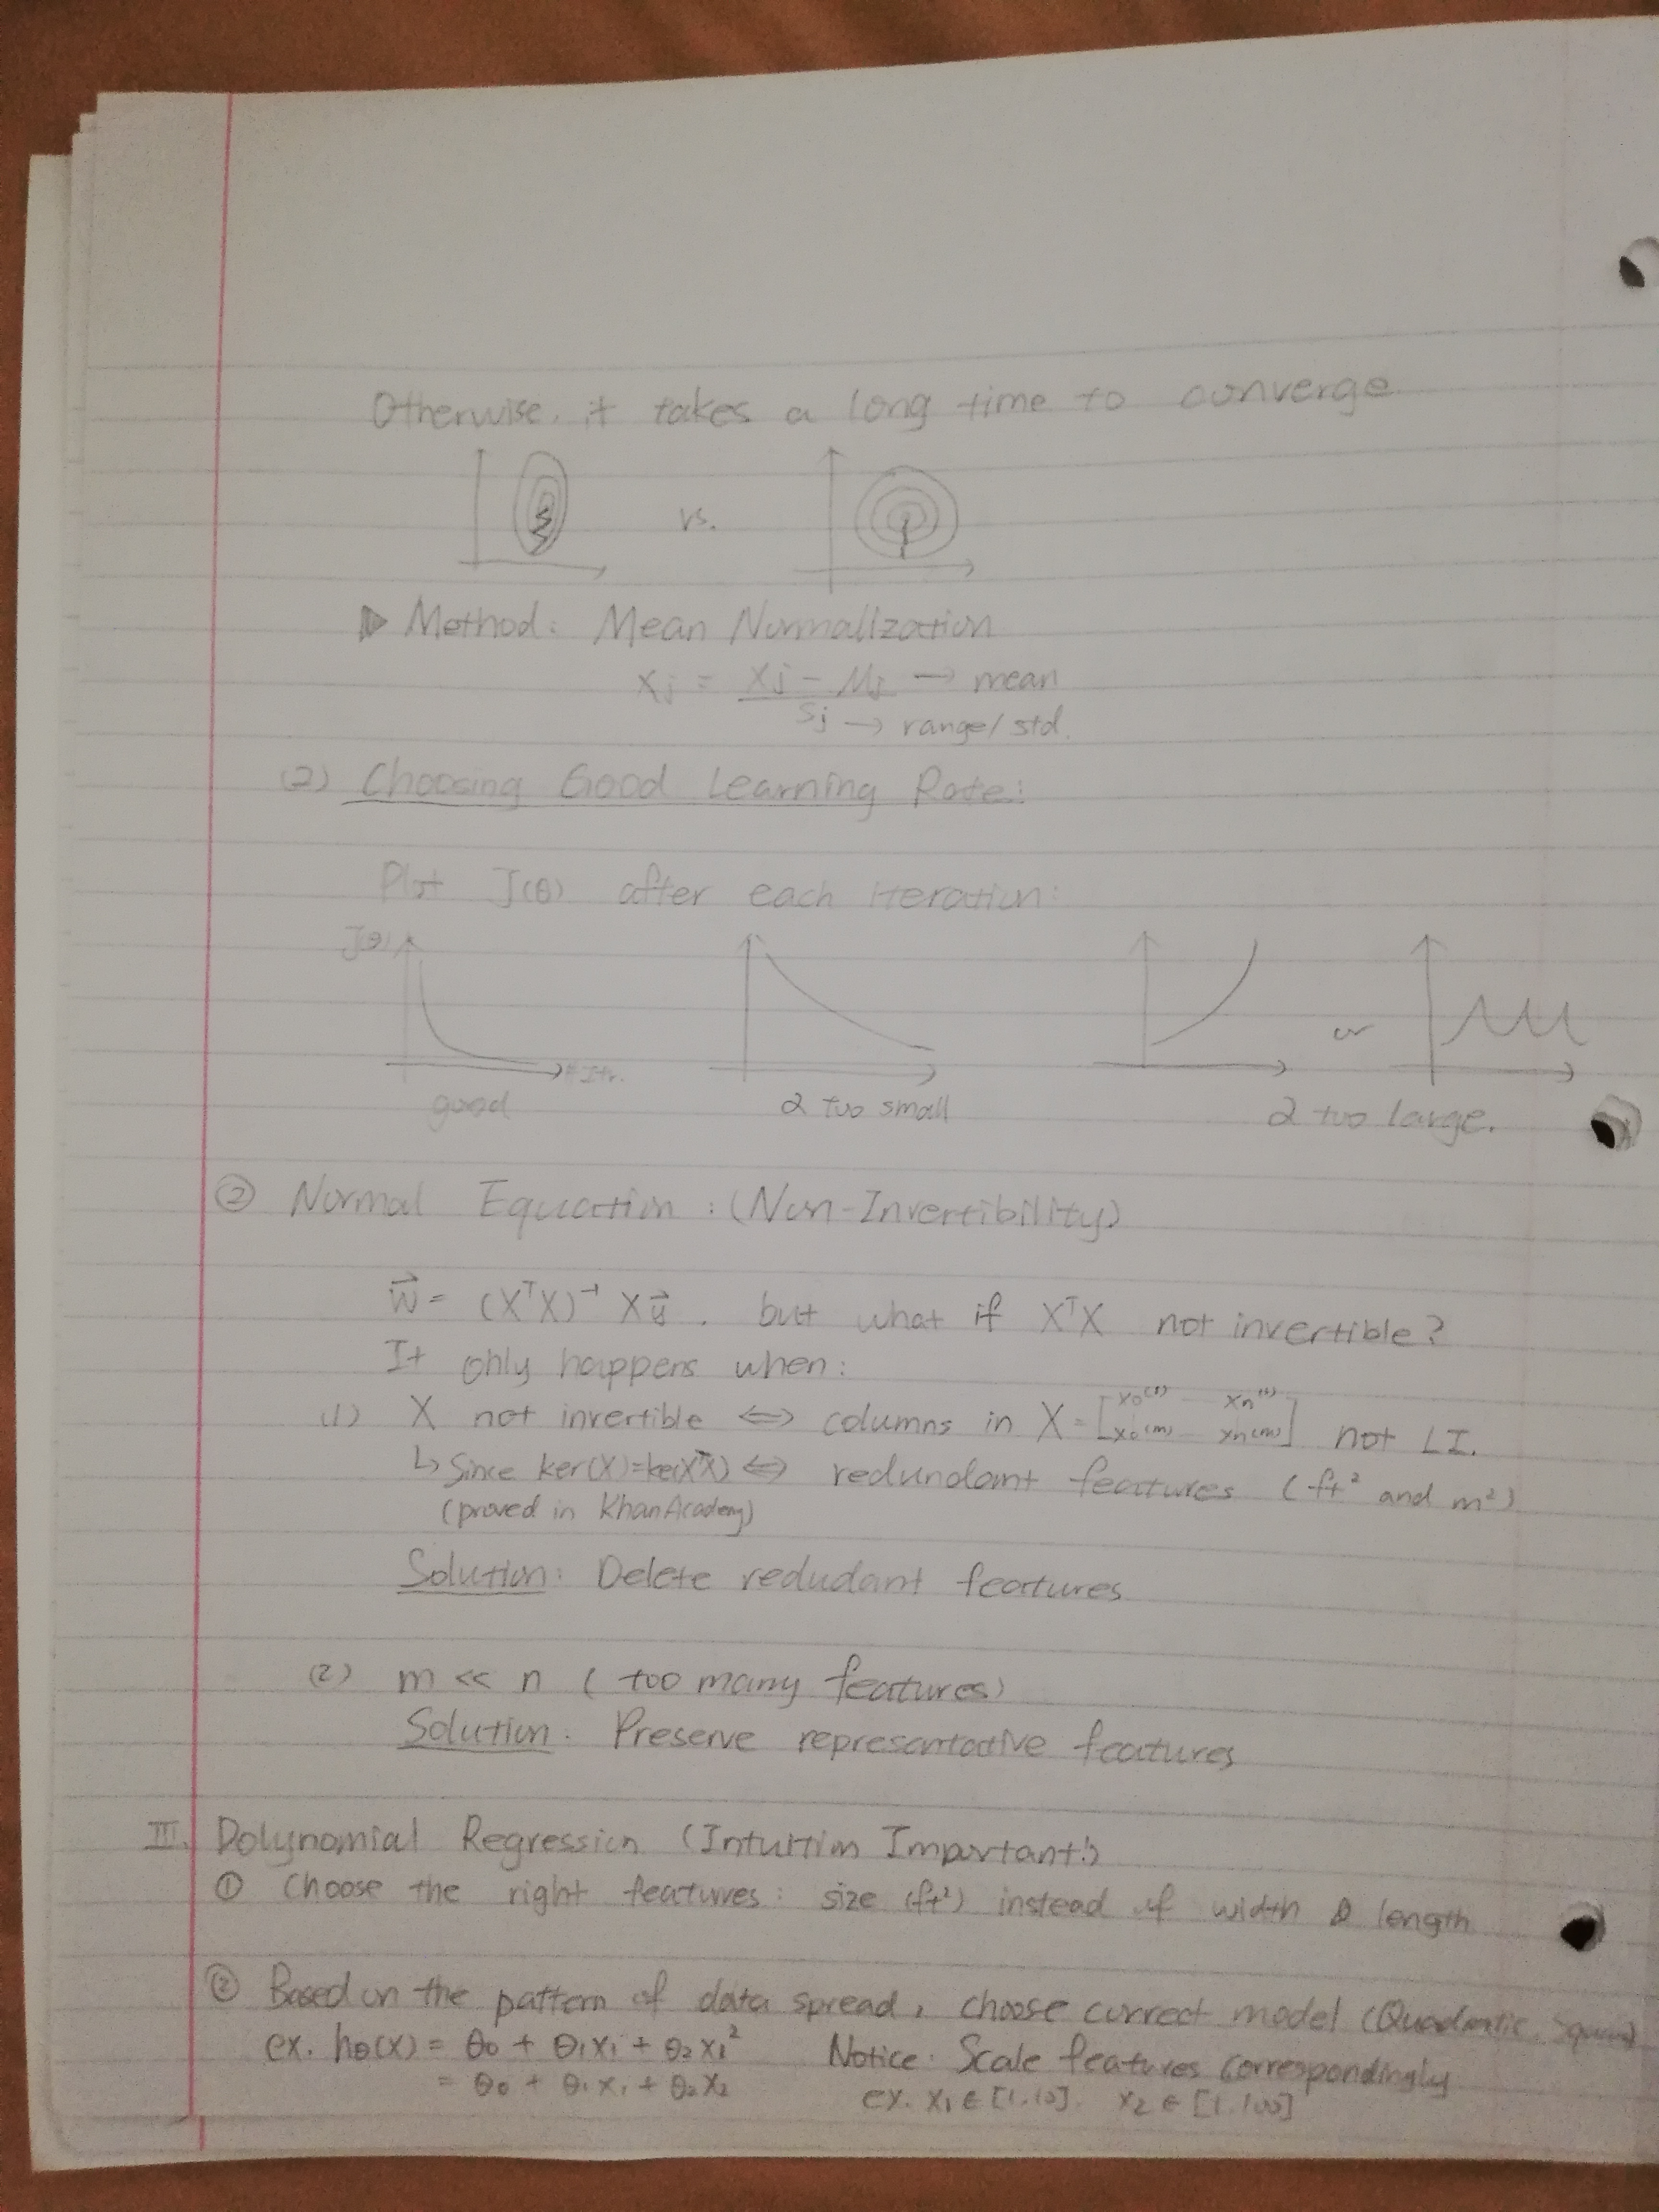 Otherwise, it takes a long time to converge
vs.
Method: Mean Normalization
xj = xj - μj → mean
sj → range/std.
(2) Choosing Good Learning Rate:
Plot J(θ) after each iteration:
J(θ)
or
#Itr.
good
α too small
α too large.
② Normal Equation: (Non-Invertibility)
w⃗ = (XᵀX)⁻¹ Xy⃗. but what if XᵀX not invertible?
It only happens when:
(1) X not invertible ⇔ columns in X = [x0⁽¹⁾ ... xn⁽¹⁾ x0⁽ᵐ⁾ ... xn⁽ᵐ⁾] not LI.
↳ Since ker(X)=ker(XᵀX) ⇔ redundant features (ft² and m²)
(proved in Khan Academy)
Solution: Delete redudant features
(2) m << n (too many features)
Solution: Preserve representative features
III. Polynomial Regression (Intuition Important!)
① Choose the right features: size (ft²) instead of width & length
② Based on the pattern of data spread, choose correct model (Quadratic,
ex. hθ(x) = θ0 + θ1x1 + θ2x1² Notice: Scale features correspondingly
= θ0 + θ1x1 + θ2x2 ex. x1 ∈ [1,10]. x2 ∈ [1,100]